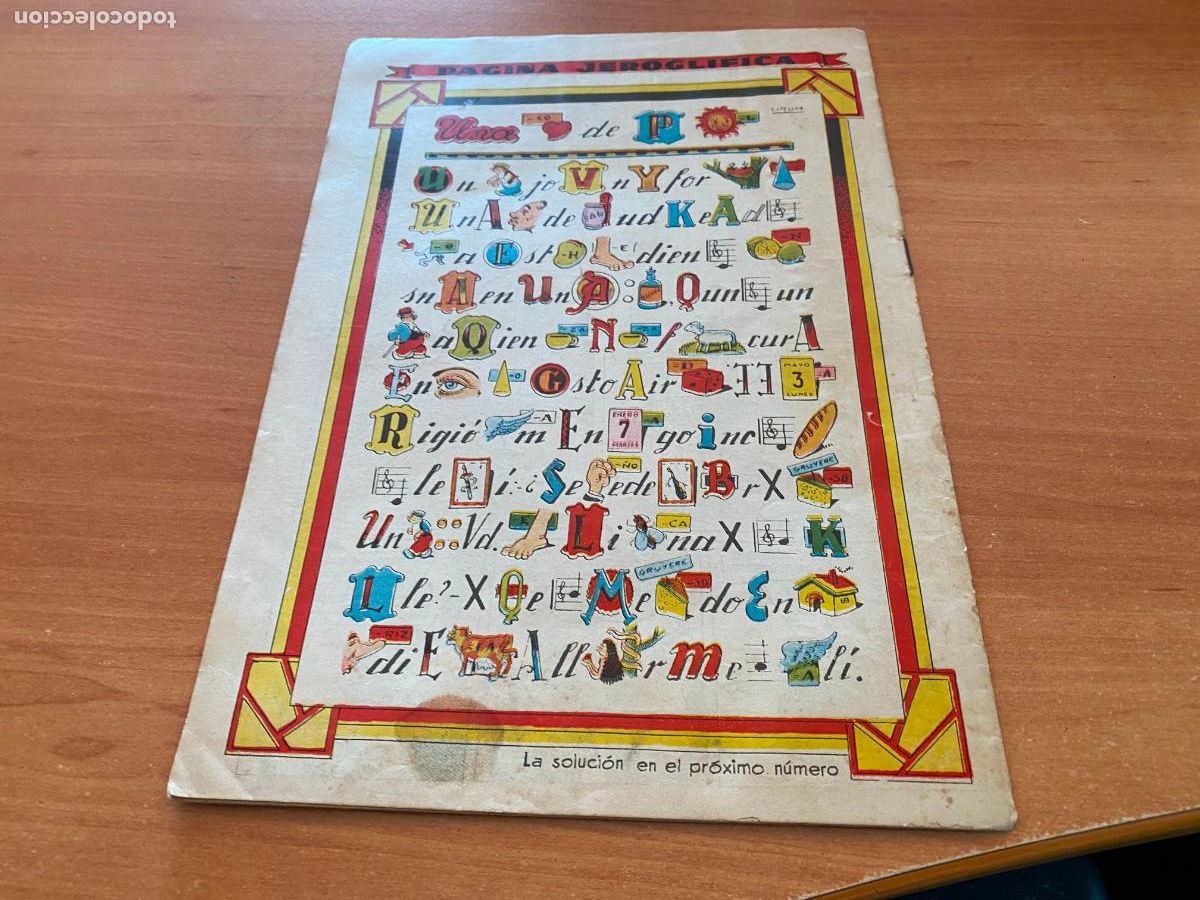 todocoleccion
PAGINA JEROGLIFICA
URDA
Una -CO de P -L
Un jo V n Y for
U n A de SAL J ud K e A d
-O a E st -H -E! dien -N
sn A en U n A : Q un un
a Q ien -ZA N -ZA f cur A
En -O G sto A ir -DO EE MAYO 3 LUNES -A
R igió -A m En ENERO 7 MARTES -A go i nc
le í:-¿ S e -ÑO ede B r X GRUYERE -SO
Un :: Vd. -E L i -CA na X K
L le?- X Q e M e GRUYERE -SO do E n
-RIZ di E A ll r m e -A lí.
La solución en el próximo número